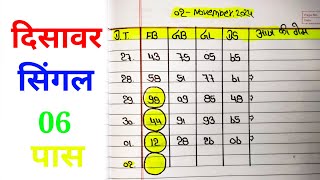 दिसावर
सिंगल
06
पास
02-November.2024
D.T FB GB GL DS आज की गेम
27. 43 75 05 61
28 58 51 77 61
29 99 09 85 48
30 44 91 93 65
01 12 28 26 06
02